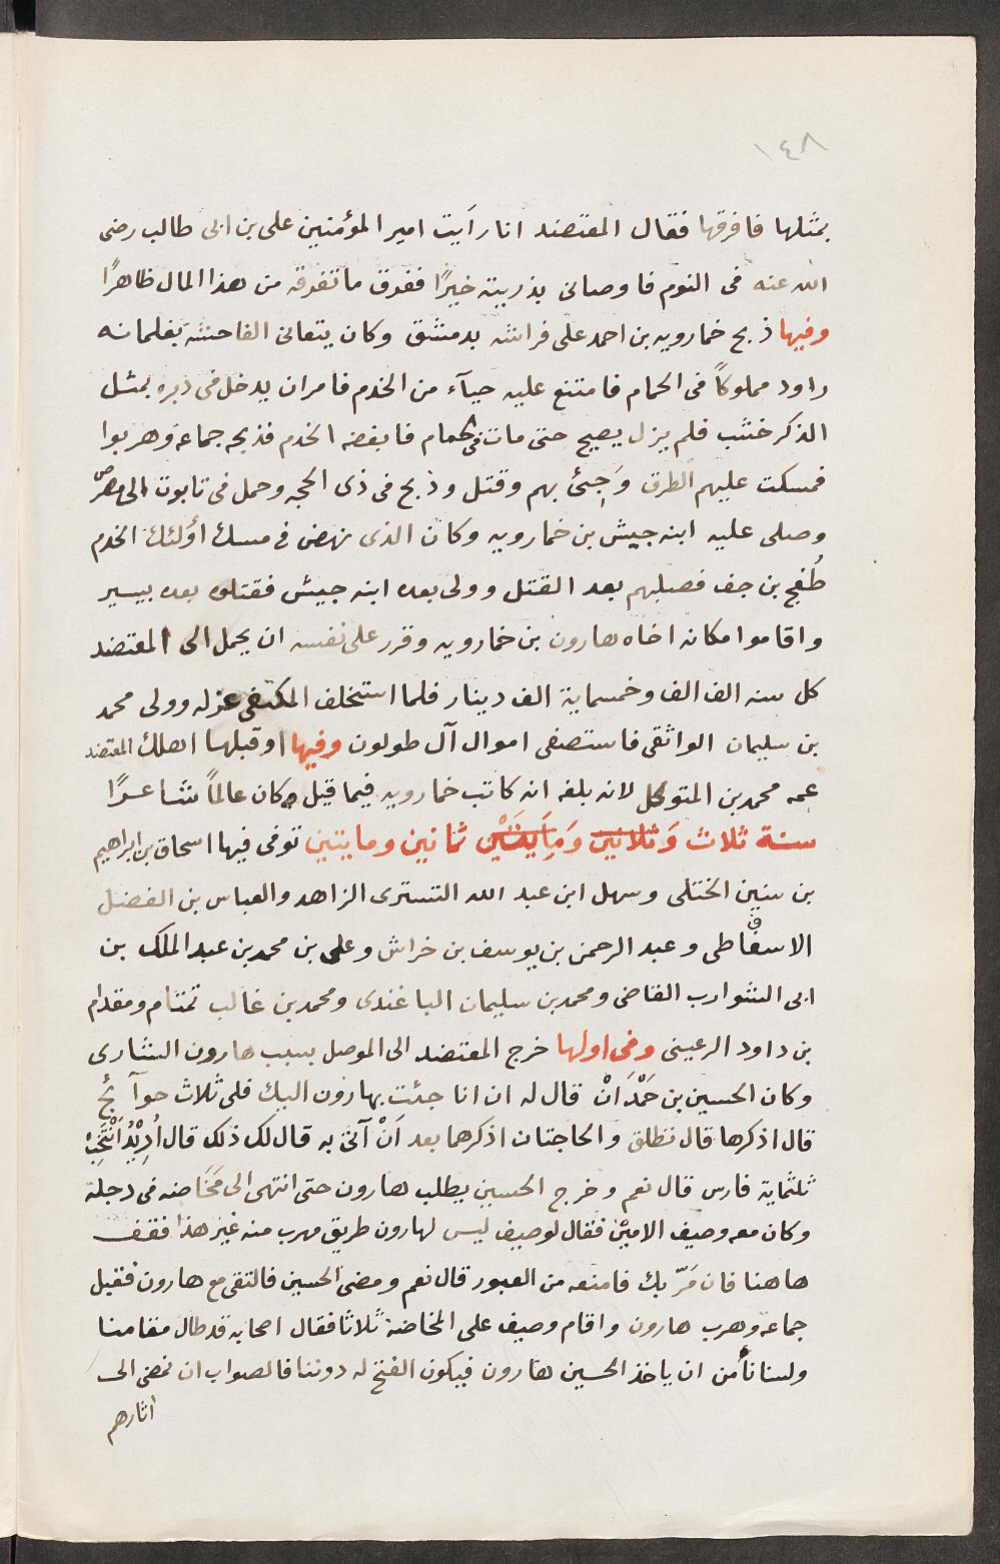 ١٤٨
بمثلها فافرقها فقال المعتضد انا رأيت امير المؤمنين على بن ابى طالب رضى
الله عنه فى النوم فاوصانى بذريته خيرًا ففرق ما تفرقه من هذا المال ظاهرًا
وفيها ذبح خمارويه بن احمد على فراشه بدمشق وكان يتعانى الفاحشة بغلمانه
راود مملوكاً فى الحمام فامتنع عليه حيآء من الخدم فامر ان يدخل فى دبره بمثل
الذكر خشب فلم يزل يصيح حتى مات فى الحمام فابغضه الخدم فذبحه جماعة وهربوا
فمسكت عليهم الطرق وَجِئ بهم وقتل وذبح فى ذى الحجه وحمل فى تابوت الى مصر
وصلى عليه ابنه جيش بن خمارويه وكان الذى نهض فى مسك أولئك الخدم
طُغج بن جف فصلبهم بعد القتل وولى بعده ابنه جيش فقتلوه بعده بيسير
واقاموا مكانه اخاه هارون بن خمارويه وقرر على نفسه ان يحمل الى المعتضد
كل سنه الف الف وخمسماية الف دينار فلما استخلف المكتفى عزله وولى محمد
بن سليمان الواثقى فاستصفى اموال آل طولون وفيها او قبلها اهلك المعتضد
عمه محمد بن المتوكل لانه بلغه انه كاتب خمارويه فيما قيل وكان عالماً شاعرًا
سنة ثلاث وَثلاثين وَمَايَتَيْن ثمانين ومايتين توفى فيها اسحاق بن ابراهيم
بن سنين الختلى وسهل ابن عبد الله التسترى الزاهد والعباس بن الفضل
الاسفاطى وعبد الرحمن بن يوسف بن خراش وعلى بن محمد بن عبد الملك بن
ابى الشوارب القاضى ومحمد بن سليمان الباغندى ومحمد بن غالب تمتام ومقدام
بن داود الرعينى وفى اولها خرج المعتضد الى الموصل بسبب هارون الشارى
وكان الحسين بن حَمْدَانْ قال له ان انا جئت بهارون اليك فلى ثلاث حوآئج
قال اذكرها قال تطلق والحاجتان اذكرهما بعد اَنْ آتى به قال لك ذلك قال أُرِيْدُ اَنْتَخِبْ
ثلثماية فارس قال نعم وخرج الحسين يطلب هارون حتى انتهى الى مَخَاضه فى دجلة
وكان معه وصيف الامين فقال لوصيف ليس لهارون طريق مهرب منه غير هذا فقف
هاهنا فان مَرّ بك فامنعه من العبور قال نعم ومضى الحسين فالتقى مع هارون فقيل
جماعة وهرب هارون واقام وصيف على المخاضة ثلاثا فقال اصحابه قد طال مقامنا
ولسنا نأمن ان ياخذ الحسين هارون فيكون الفتح له دوننا فالصواب ان نمضى الى
اثارهم